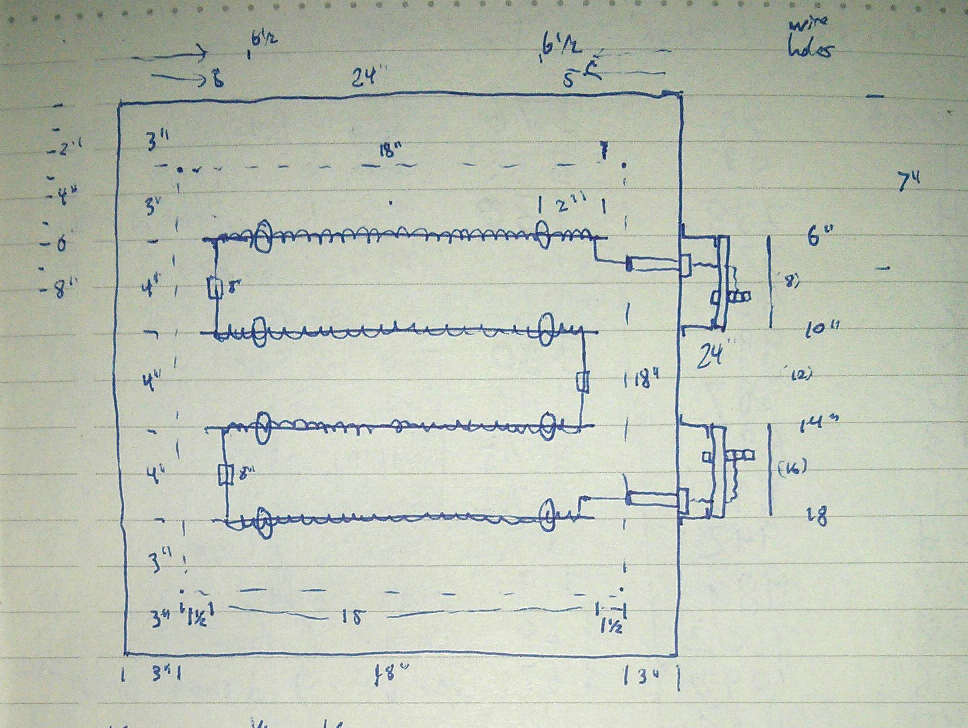 wire
holes
6 1/2
6 1/2
8
24"
5
3"
18"
2"
4"
3"
2"
7"
6
6"
8"
4"
8"
(8)
10"
24"
4"
18"
(12)
14"
4"
8"
(16)
18
3"
3"
1 1/2
15
1 1/2
3"
18"
3"